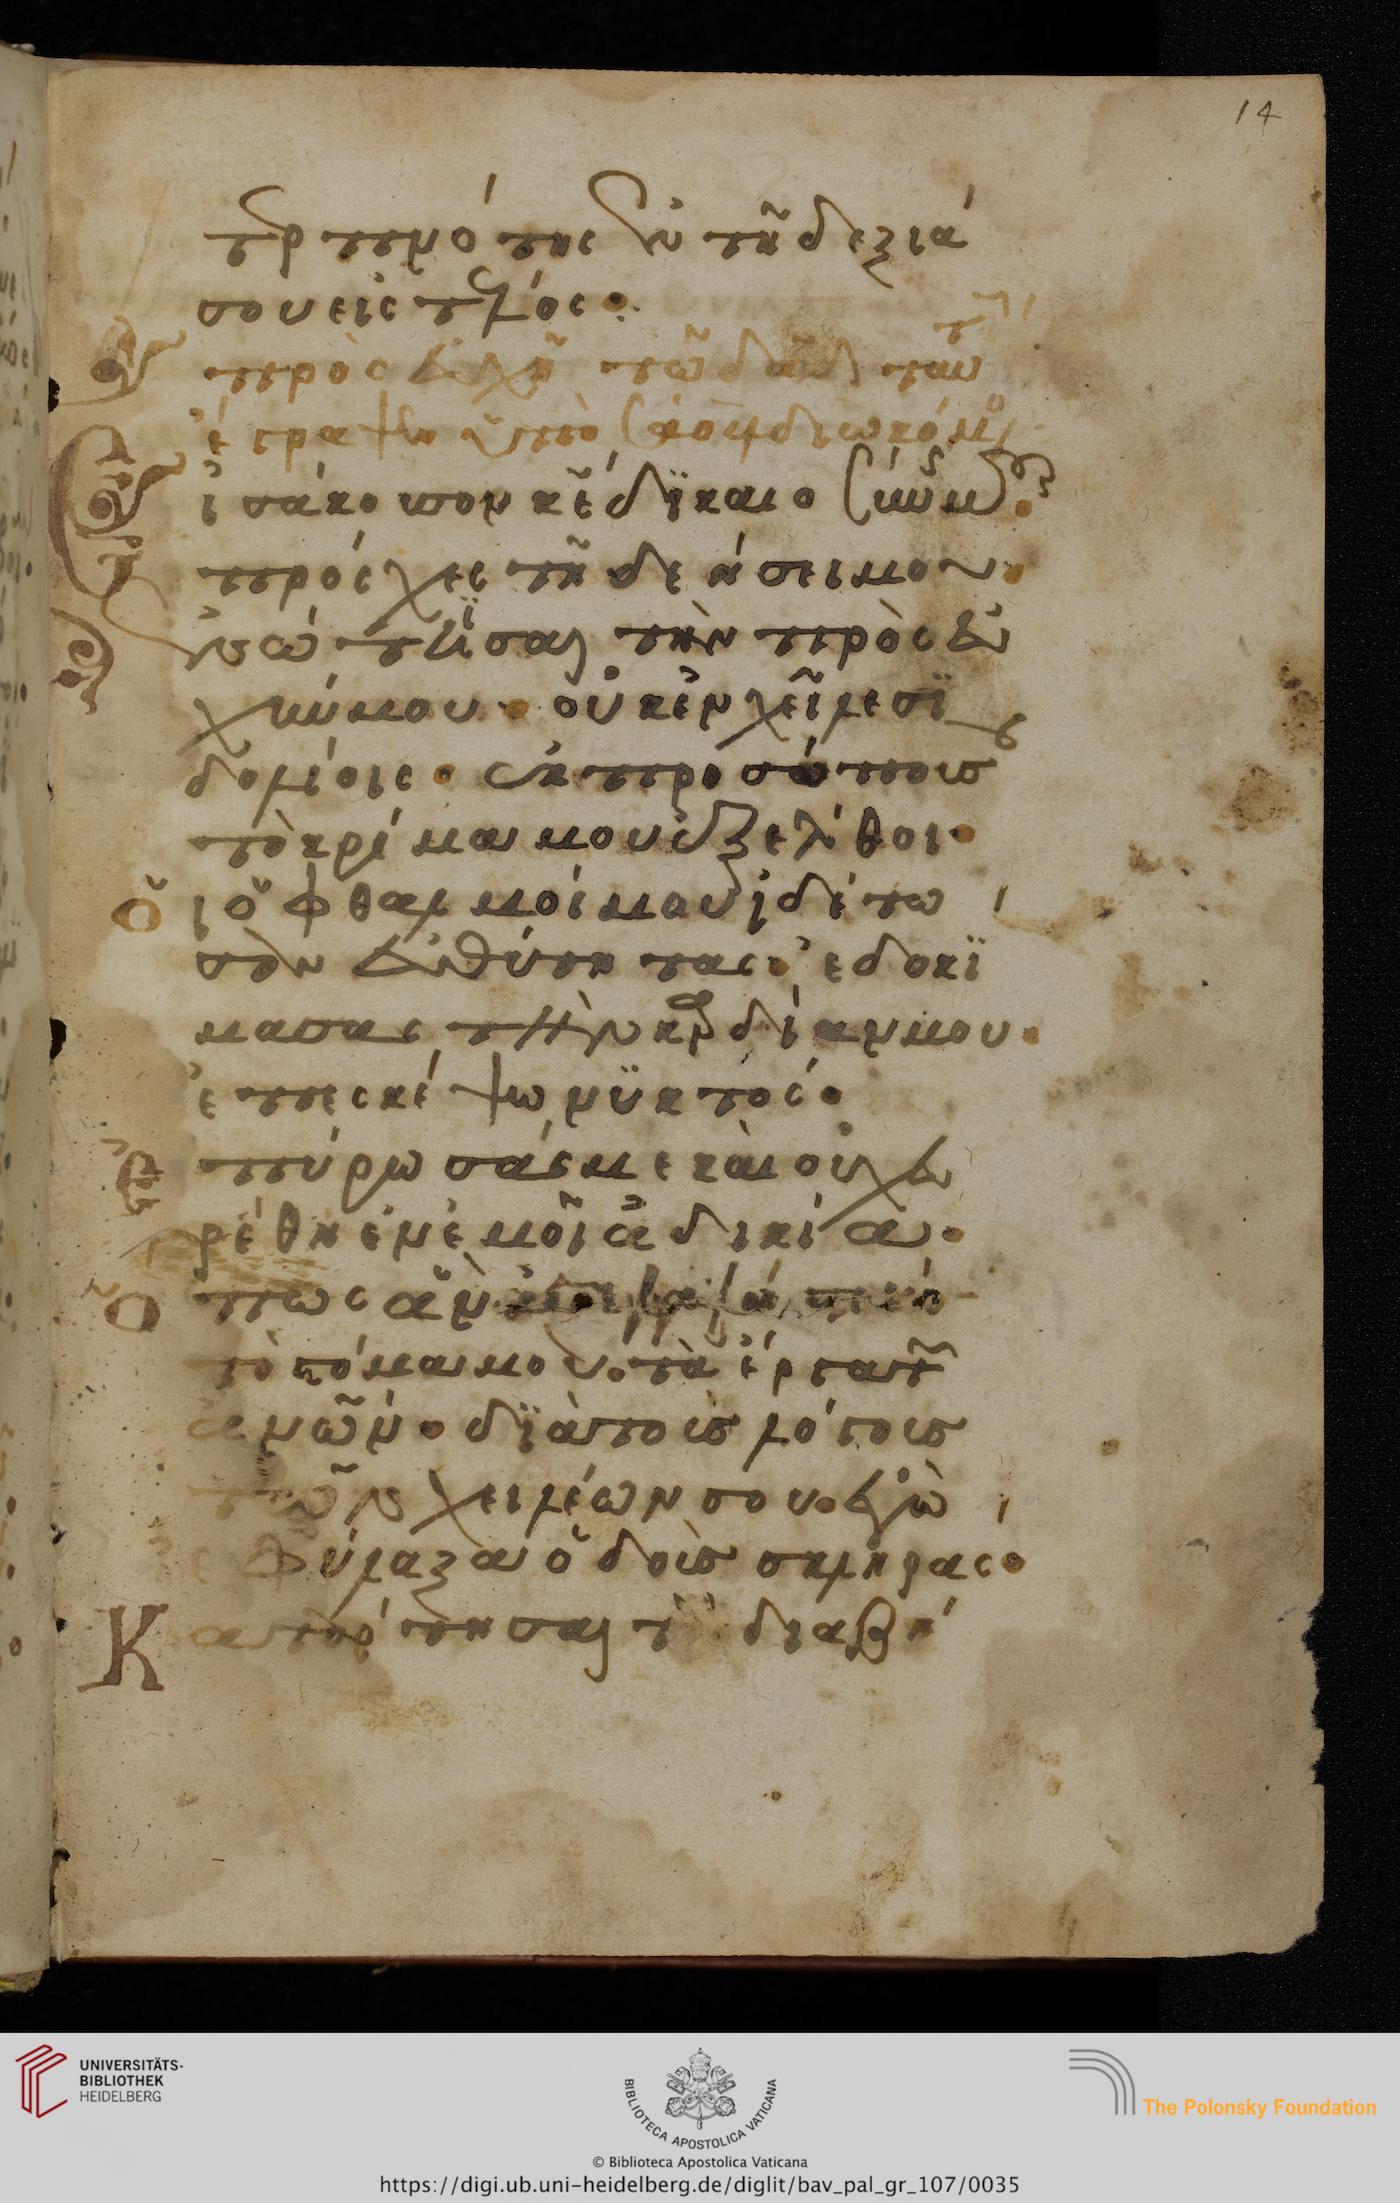 τερπνότης ἐν τῆ δεξιά
σου εἰς τέλος:
προσευχῆ τῶ δᾱδ ταύτ
ἔγραψεν ὑπὸ σαοὺλ διωκόμενος
Εἰσάκουσον κ̄ε̄ δϊκαιοσύνης μου·
πρόσχες τῆ δεήσει μου·
ἐνώτϊσαι τὴν προσευ
χήν μου· οὐκ ἐν χείλεσϊ
δολίοις· Ἐκ προσώπου σου
τὸ κρίμα μου ἐξέλθοι·
Ὁι ὀφθαλμοί μου ἰδέτω
σαν εὐθύτητας· ἐδοκϊ
μασας τὴν καρδίαν μου·
ἐπεσκέψω νϋκτός·
Ἐπύρωσάς με καὶ οὐχ εὑ
ρέθη ἐν ἐμοῖ ἀδικία·
Ὅπως ἂν μὴ λαλήση
τὸ στόμα μου· τὰ ἔργα τῶν
ᾱνῶν· δϊὰ τοὺς λόγους
τῶν χειλέων σου· ἐγὼ
ἐφύλαξα ὁδοὺς σκληράς·
Κατάρτησαι τὰ διαβή
14
UNIVERSITÄTS-
BIBLIOTHEK
HEIDELBERG
BIBLIOTECA APOSTOLICA VATICANA
The Polonsky Foundation
© Biblioteca Apostolica Vaticana
https://digi.ub.uni-heidelberg.de/diglit/bav_pal_gr_107/0035